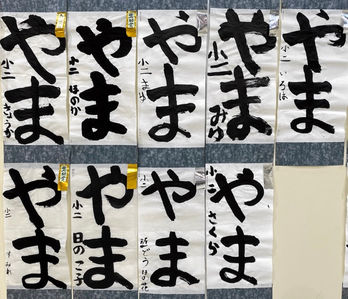 やま
小二
やま
ほのか
やま
小二
やま
小二 みゆ
やま
小二 いろは
やま
小二 すみれ
やま
小二
やま
小二
やま
小二 さくら